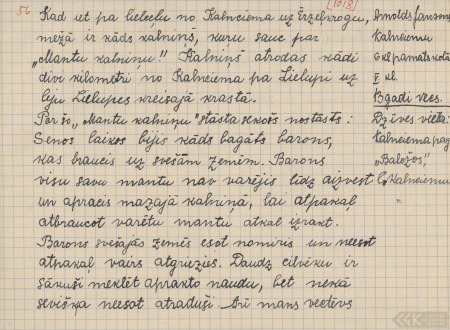 56
[1018]
Kad iet pa lielceļu no Kalnciema uz
mežā ir kāds kalniņš, kuru sauc par
„Mantu kalniņu!” Kalniņš atrodas kādi
divi kilometri no Kalnciema pa Lielupi uz
leju Lielupes kreisajā krastā.
Par šo „Mantu kalniņu” stāsta sekošs nostāsts:
Senos laikos bijis kāds bagāts barons,
kas braucis uz svešām zemēm. Barons
visu savu mantu nav varējis līdz aizvest
un apracis mazajā kalniņā, lai atpakaļ
atbraucot varētu mantu atkal izrakt.
Barons svešajās zemēs esot nomiris un neesot
atpakaļ vairs atgriezies. Daudz cilvēku ir
sākuši meklēt aprakto naudu, bet nekā
sevišķa neesot atraduši. Arī mans vectēvs
Arnolds Jansons
Kalnciema
6 kl. pamatskola
V kl.
13 gadi vecs.
Dzīves vieta:
Kalnciema pag.
„Baložos”
Kalnciemu